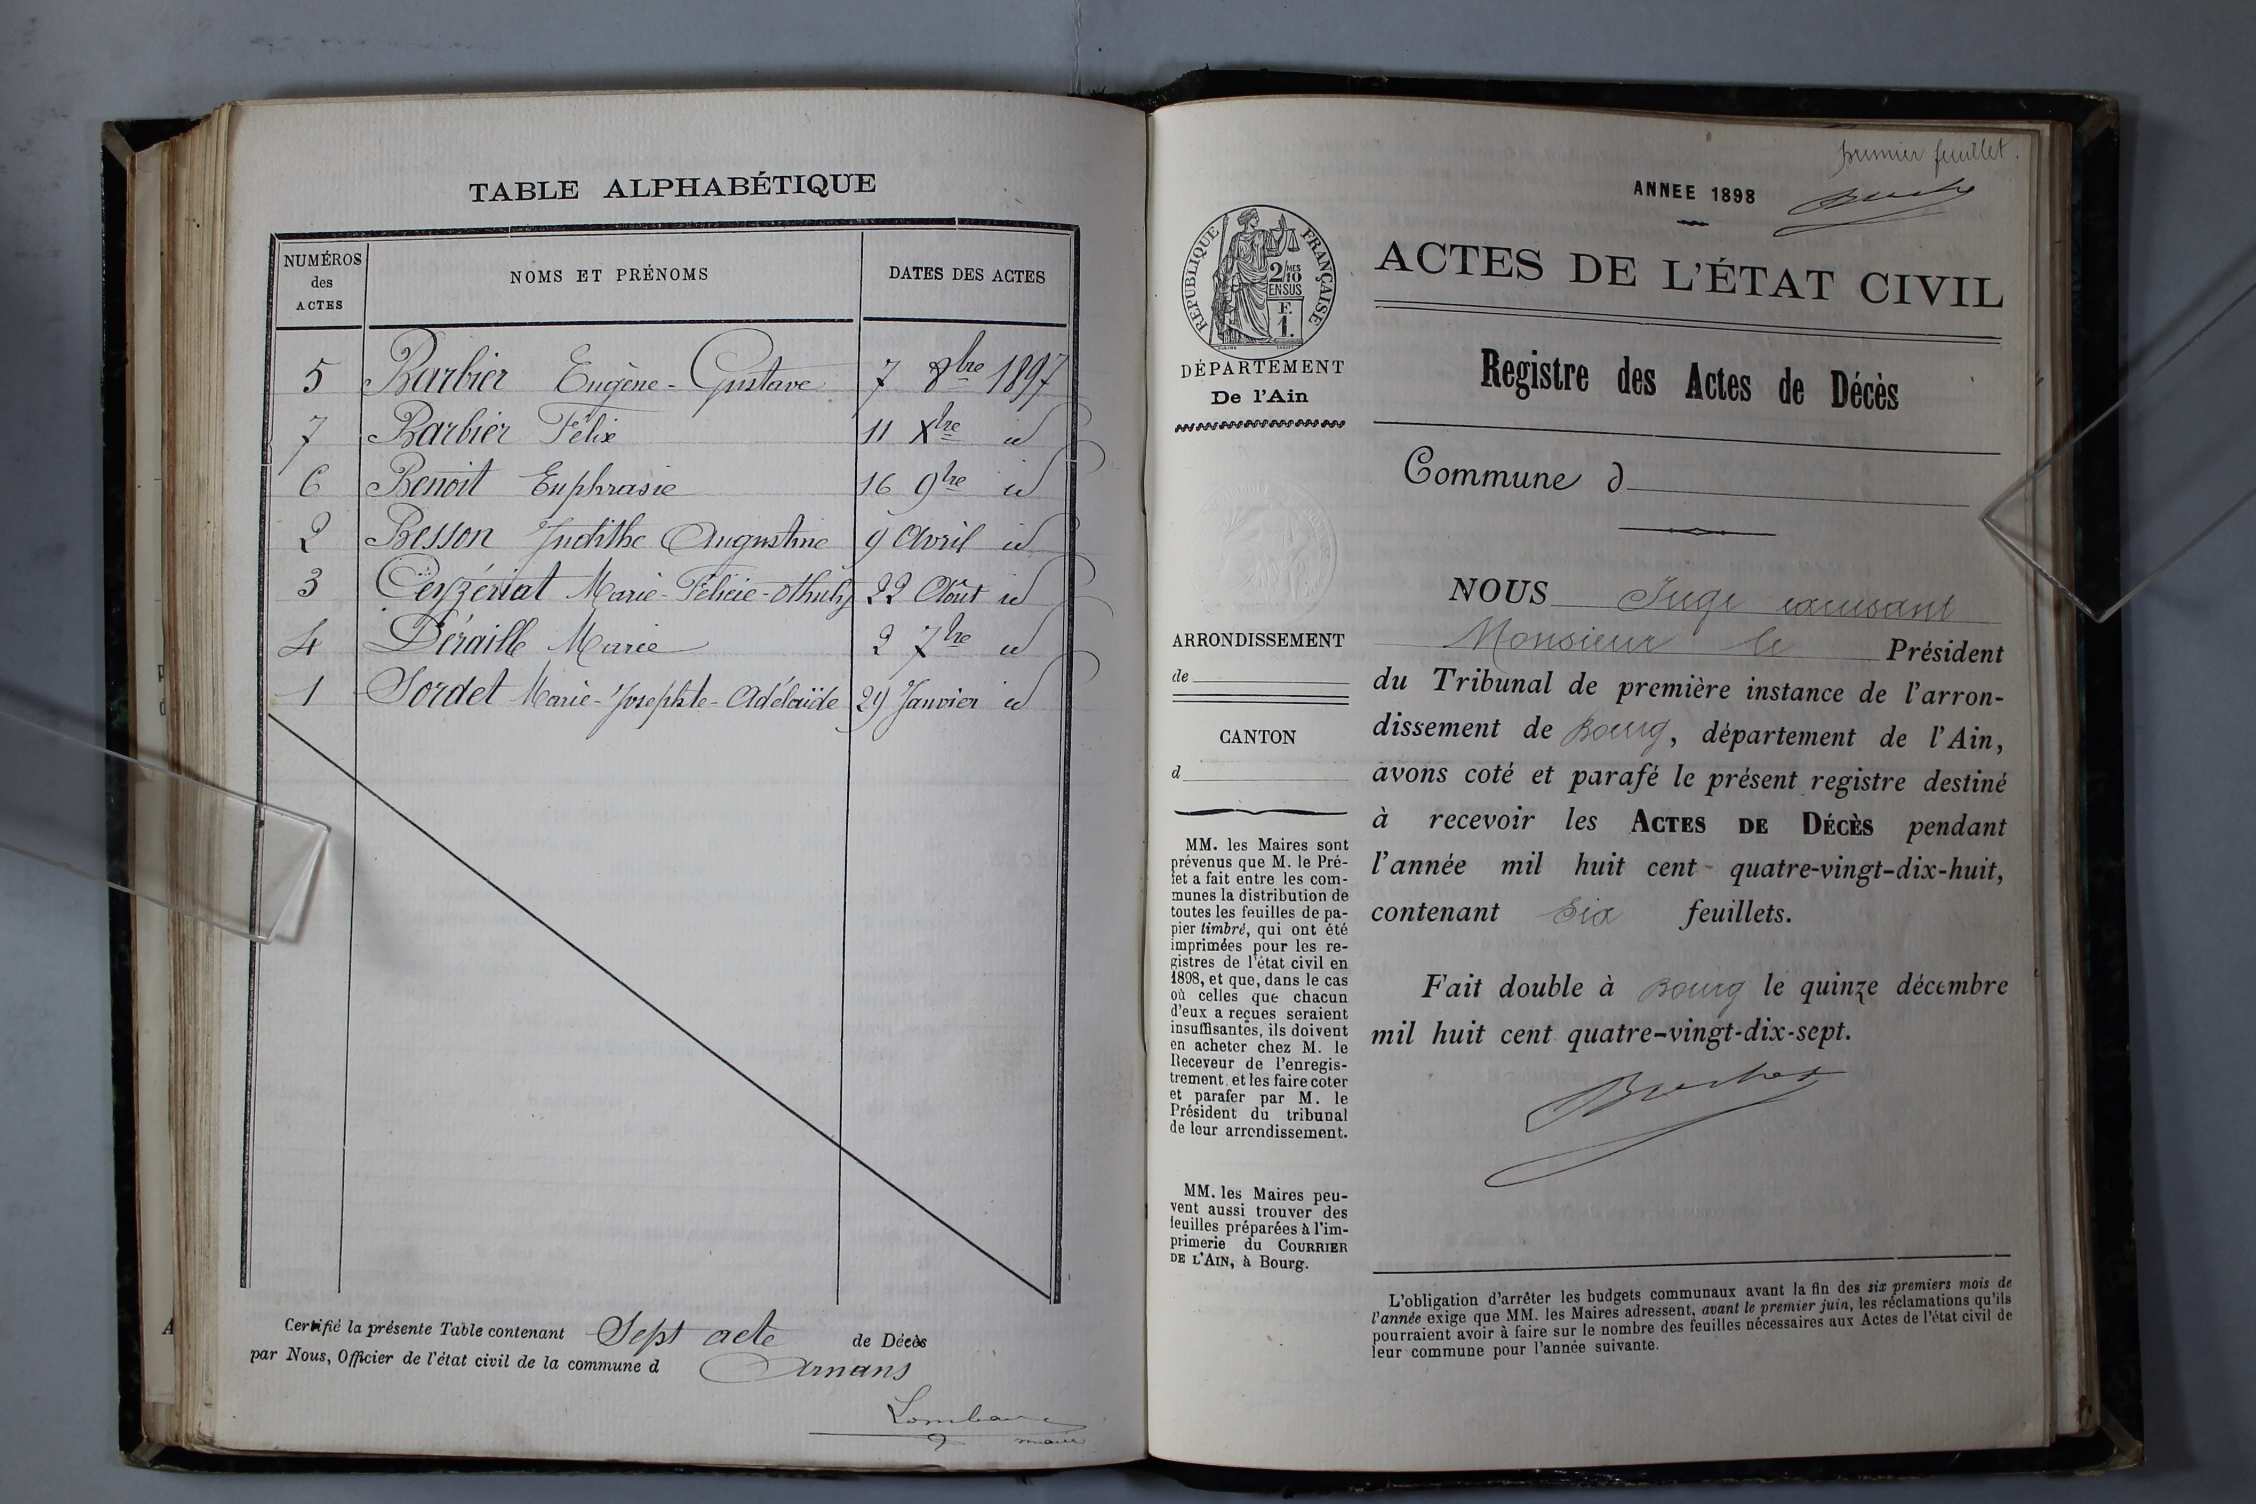 TABLE ALPHABÉTIQUE
NUMÉROS
des
ACTES
NOMS ET PRÉNOMS
DATES DES ACTES
5 Barbier Eugène-Gustave 7 8bre 1897
7 Barbier Félix 11 Xbre id
6 Benoit Euphrasie 16 9bre id
2 Besson Judithe Augustine 9 Avril id
3 Ceyzériat Marie-Félicie- 22 Août id
4 Déraille Marie 2 7bre id
1 Sordet Marie-Josephte-Adélaïde 29 Janvier id
Certifié la présente Table contenant Sept acte de Décès
par Nous, Officier de l'état civil de la commune d Arnans
maire
premier feuillet.
ANNEE 1898
RÉPUBLIQUE FRANÇAISE
2/10 MES
EN SUS
F.
1.
DÉPARTEMENT
De l'Ain
ARRONDISSEMENT
de
CANTON
d
MM. les Maires sont
prévenus que M. le Pré-
fet a fait entre les com-
munes la distribution de
toutes les feuilles de pa-
pier timbré, qui ont été
imprimées pour les re-
gistres de l'état civil en
1898, et que, dans le cas
où celles que chacun
d'eux a reçues seraient
insuffisantes, ils doivent
en acheter chez M. le
Receveur de l'enregis-
trement et les faire coter
et parafer par M. le
Président du tribunal
de leur arrondissement.
MM. les Maires peu-
vent aussi trouver des
feuilles préparées à l'im-
primerie du COURRIER
DE L'AIN, à Bourg.
ACTES DE L'ÉTAT CIVIL
Registre des Actes de Décès
Commune d
NOUS Juge
Monsieur le Président
du Tribunal de première instance de l'arron-
dissement de Bourg, département de l'Ain,
avons coté et parafé le présent registre destiné
à recevoir les ACTES DE DÉCÈS pendant
l'année mil huit cent quatre-vingt-dix-huit,
contenant Six feuillets.
Fait double à Bourg le quinze décembre
mil huit cent quatre-vingt-dix-sept.
L'obligation d'arrêter les budgets communaux avant la fin des six premiers mois de
l'année exige que MM. les Maires adressent, avant le premier juin, les réclamations qu'ils
pourraient avoir à faire sur le nombre des feuilles nécessaires aux Actes de l'état civil de
leur commune pour l'année suivante.